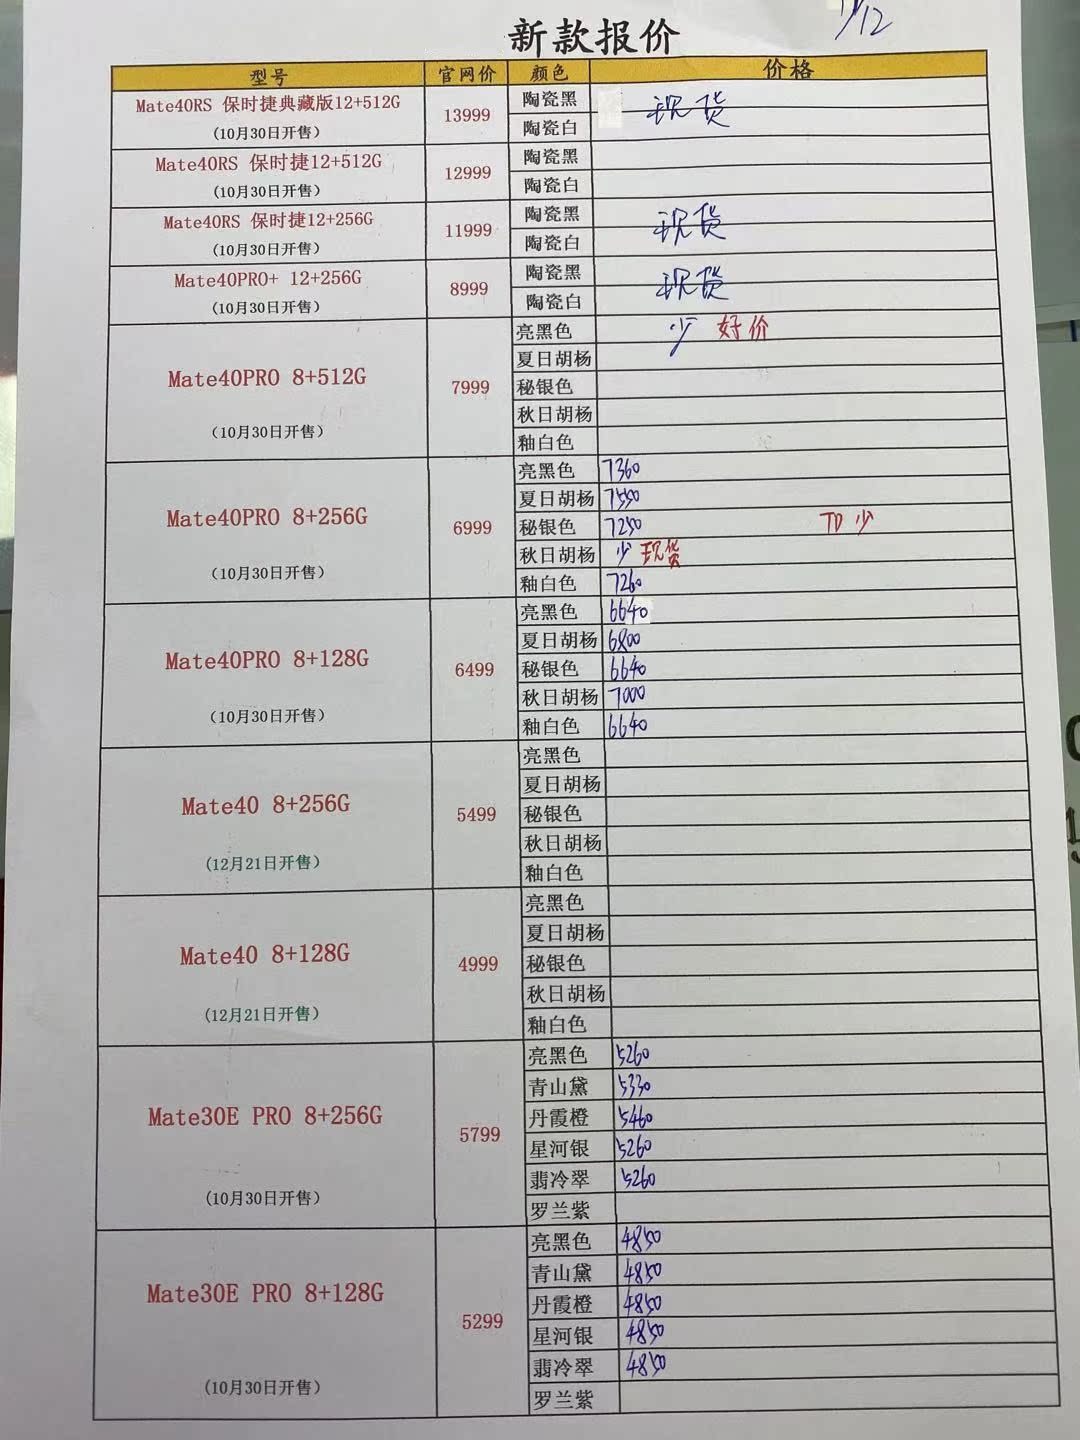 11/12
新款报价
型号 官网价 颜色 价格
Mate40RS 保时捷典藏版12+512G
(10月30日开售)
13999
陶瓷黑 现货
陶瓷白
Mate40RS 保时捷12+512G
(10月30日开售)
12999
陶瓷黑
陶瓷白
Mate40RS 保时捷12+256G
(10月30日开售)
11999
陶瓷黑 现货
陶瓷白
Mate40PRO+ 12+256G
(10月30日开售)
8999
陶瓷黑 现货
陶瓷白
Mate40PRO 8+512G
(10月30日开售)
7999
亮黑色 少 好价
夏日胡杨
秘银色
秋日胡杨
釉白色
Mate40PRO 8+256G
(10月30日开售)
6999
亮黑色 7360
夏日胡杨 7550
秘银色 7250 TD 少
秋日胡杨 少 现货
釉白色 7260
Mate40PRO 8+128G
(10月30日开售)
6499
亮黑色 6640
夏日胡杨 6800
秘银色 6640
秋日胡杨 7000
釉白色 6640
Mate40 8+256G
(12月21日开售)
5499
亮黑色
夏日胡杨
秘银色
秋日胡杨
釉白色
Mate40 8+128G
(12月21日开售)
4999
亮黑色
夏日胡杨
秘银色
秋日胡杨
釉白色
Mate30E PRO 8+256G
(10月30日开售)
5799
亮黑色 5260
青山黛 5330
丹霞橙 5460
星河银 5260
翡冷翠 5260
罗兰紫
Mate30E PRO 8+128G
(10月30日开售)
5299
亮黑色 4850
青山黛 4850
丹霞橙 4850
星河银 4850
翡冷翠 4850
罗兰紫